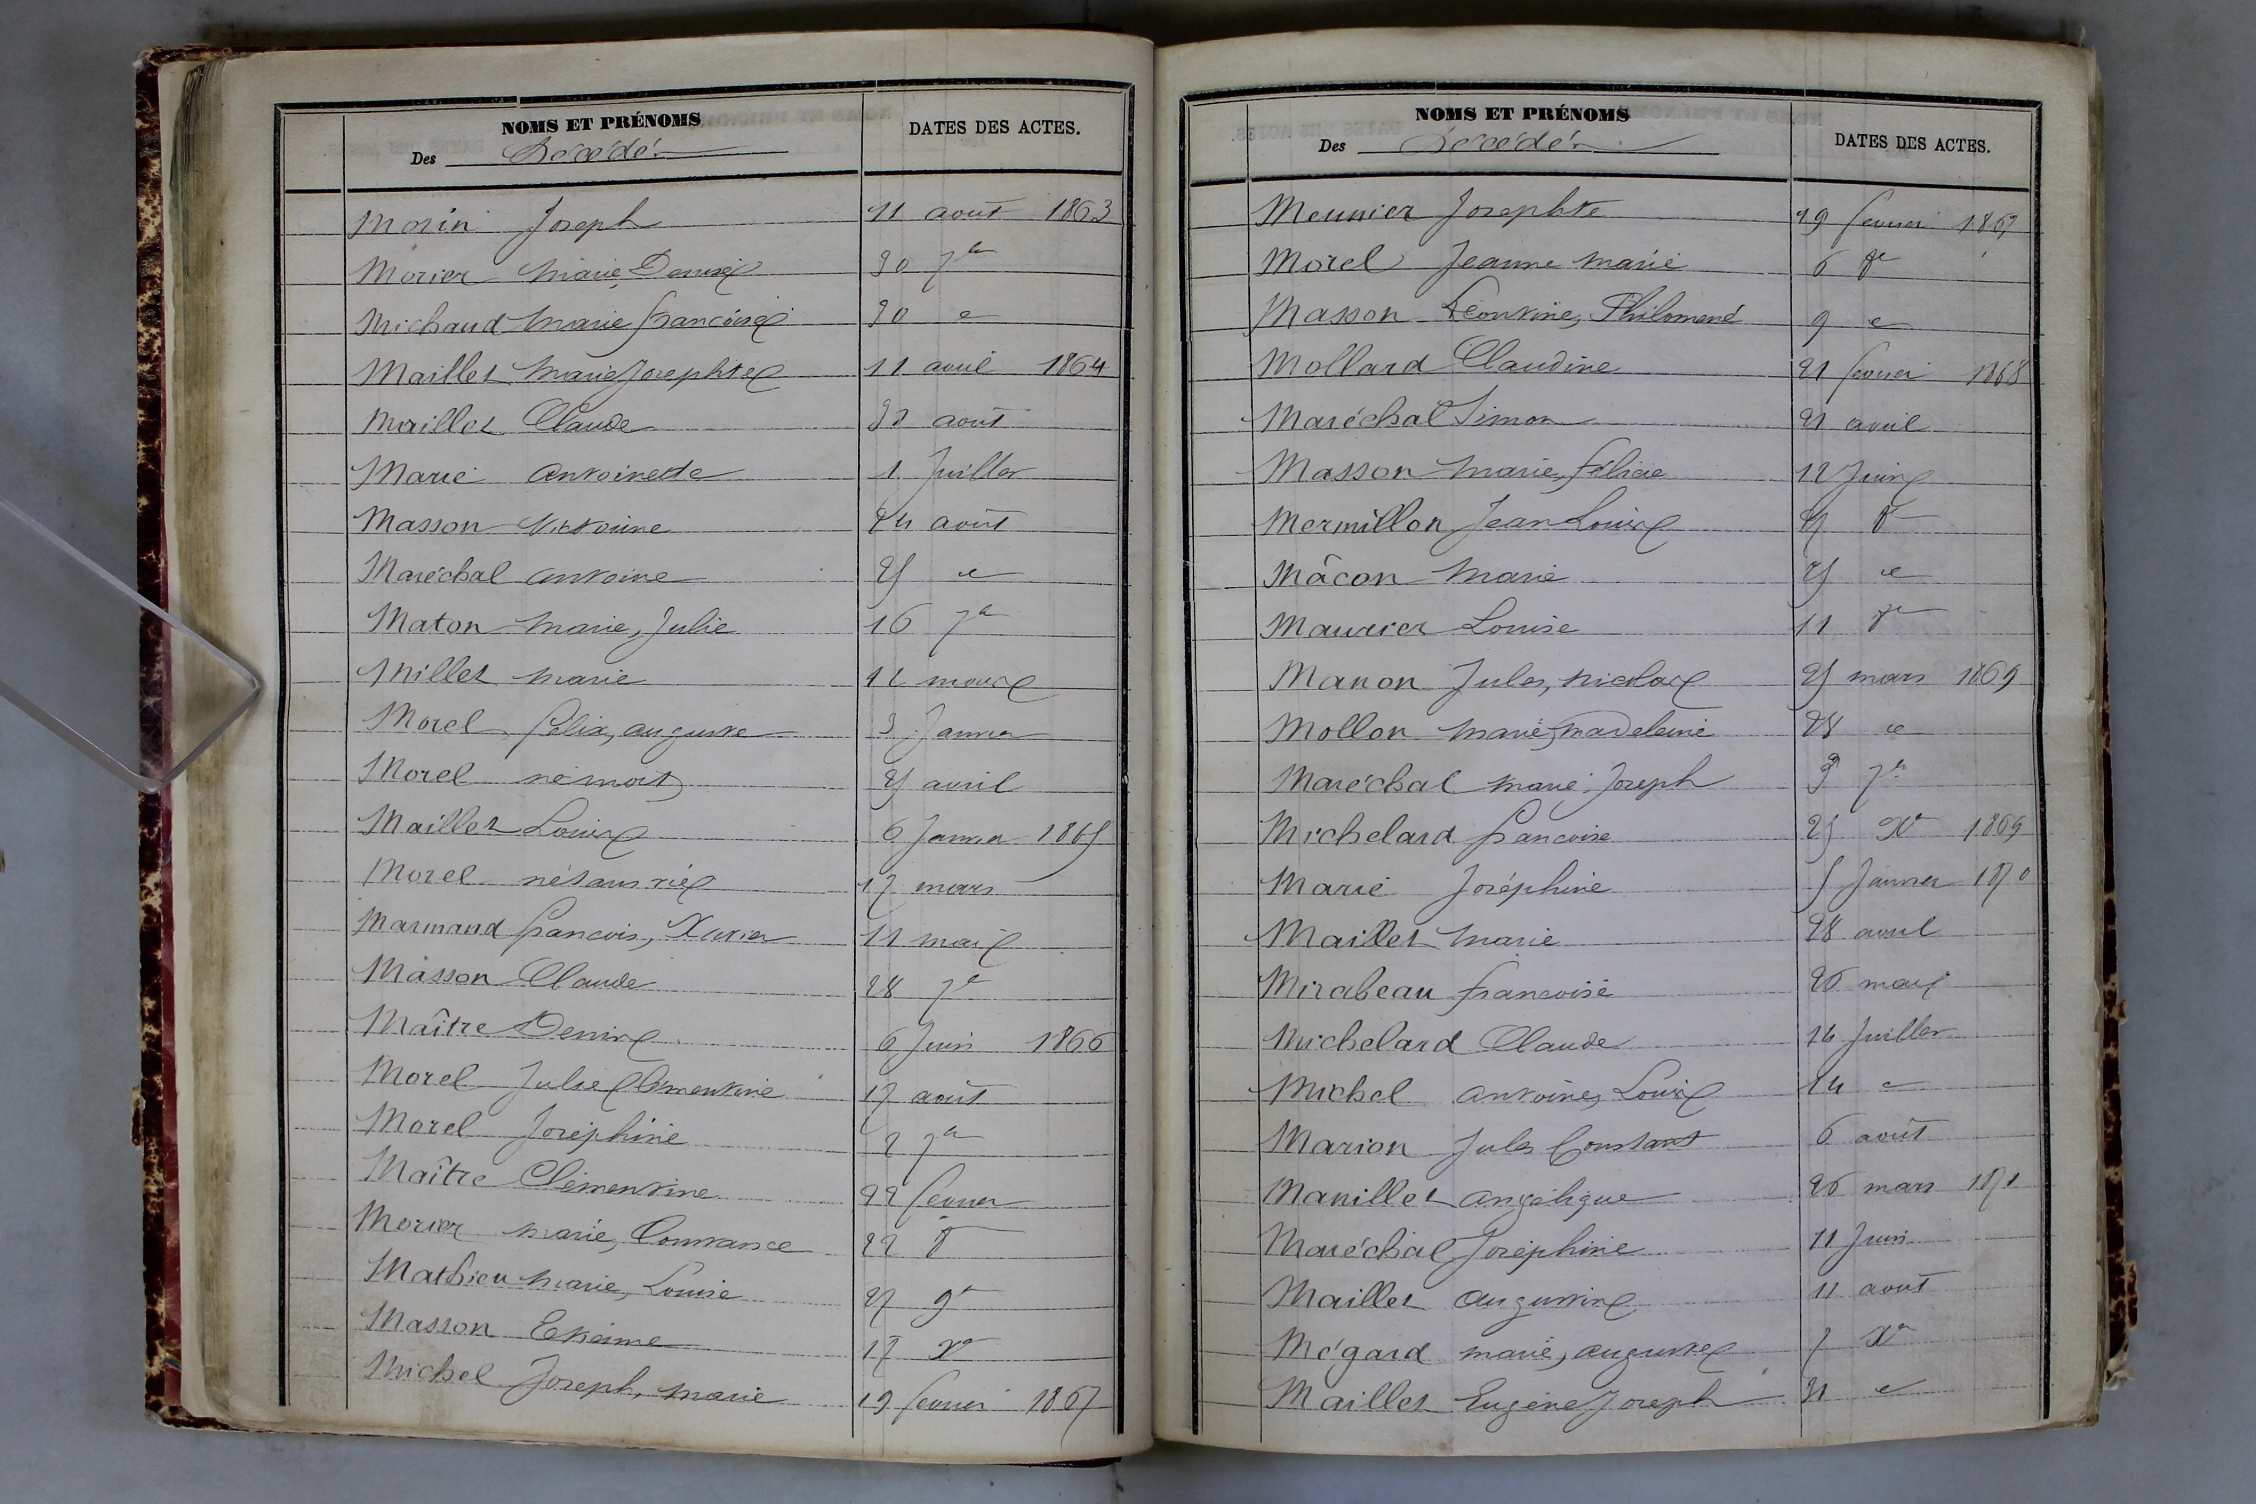 NOMS ET PRÉNOMS
Des Décédés
DATES DES ACTES.
Morin Joseph 11 août 1863
Morier Marie, Denise 30 7bre
Michaud Marie françoise 30 e
Maillet Marie Josephte 11 avril 1864
Maillet Claude août
Marie Antoinette 1 Juillet
Masson Victorine 24 août
Maréchal Antoine 25 e
Maton Marie, Julie 16 7bre
Millet Marie 12 mars
Morel félix, auguste 3 Janvier
Morel né mort 25 avril
Maillet Louis 6 Janvier 1865
Morel né sans vie 17 mars
Marmand françois, Xavier 11 mai
Masson Claude 28 7e
Maître Denis 6 Juin 1866
Morel Julie Clémentine 17 août
Morel Joséphine 2 7bre
Maître Clémentine 22 fevrier
Morier Marie, Constance 22 d
Mathieu Marie, Louise 27 9e
Masson Etienne 17 Xe
Michel Joseph, marie 19 fevrier 1867
NOMS ET PRÉNOMS
Des Décédés
DATES DES ACTES.
Meunier Josephte 19 fevrier 1867
Morel Jeanne Marie 6
Masson Léontine, Philomené 9 e
Mollard Claudine 21 fevrier 1868
Maréchal Simon 21 avril
Masson Marie, félicie 12 Juin
Mermillon Jean Louis
Mâcon Marie 25 e
Maurier Louise 11
Manon Jules, Nicolas 25 mars 1869
Mollon Marie, Madeleine 28 e
Maréchal Marie Joseph 3 7bre
Michelard françoise 25 Xe 1869
Marie Joséphine 5 Janvier 1870
Maillet Marie 28 avril
Mirabeau françoise 26 mai
Michelard Claude 16 Juillet
Michel Antoine, Louis 24 e
Marion Jules Constant 6 août
Manillet Angélique 26 mars 1871
Maréchal Joséphine 11 Juin
Maillet Augustine 11 août
Mégard Marie, Auguste 7 Xe
Maillet Eugène Joseph 31 e